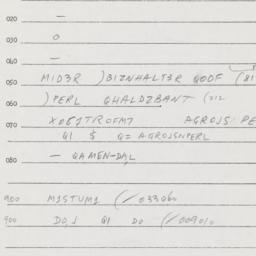 020 —
030 0
040 —
050 MID3R )BIZNHALT3R GODF (81
060 )PERL GHALDZBANT (212
070 X061TROFM7 AGROJS: PE
Q1 $ Q= AGROJSNPERL
080 — GAMEN-DA,L
900 M1STUM1 (/033060
900 DO,J Q1 DO (/009010